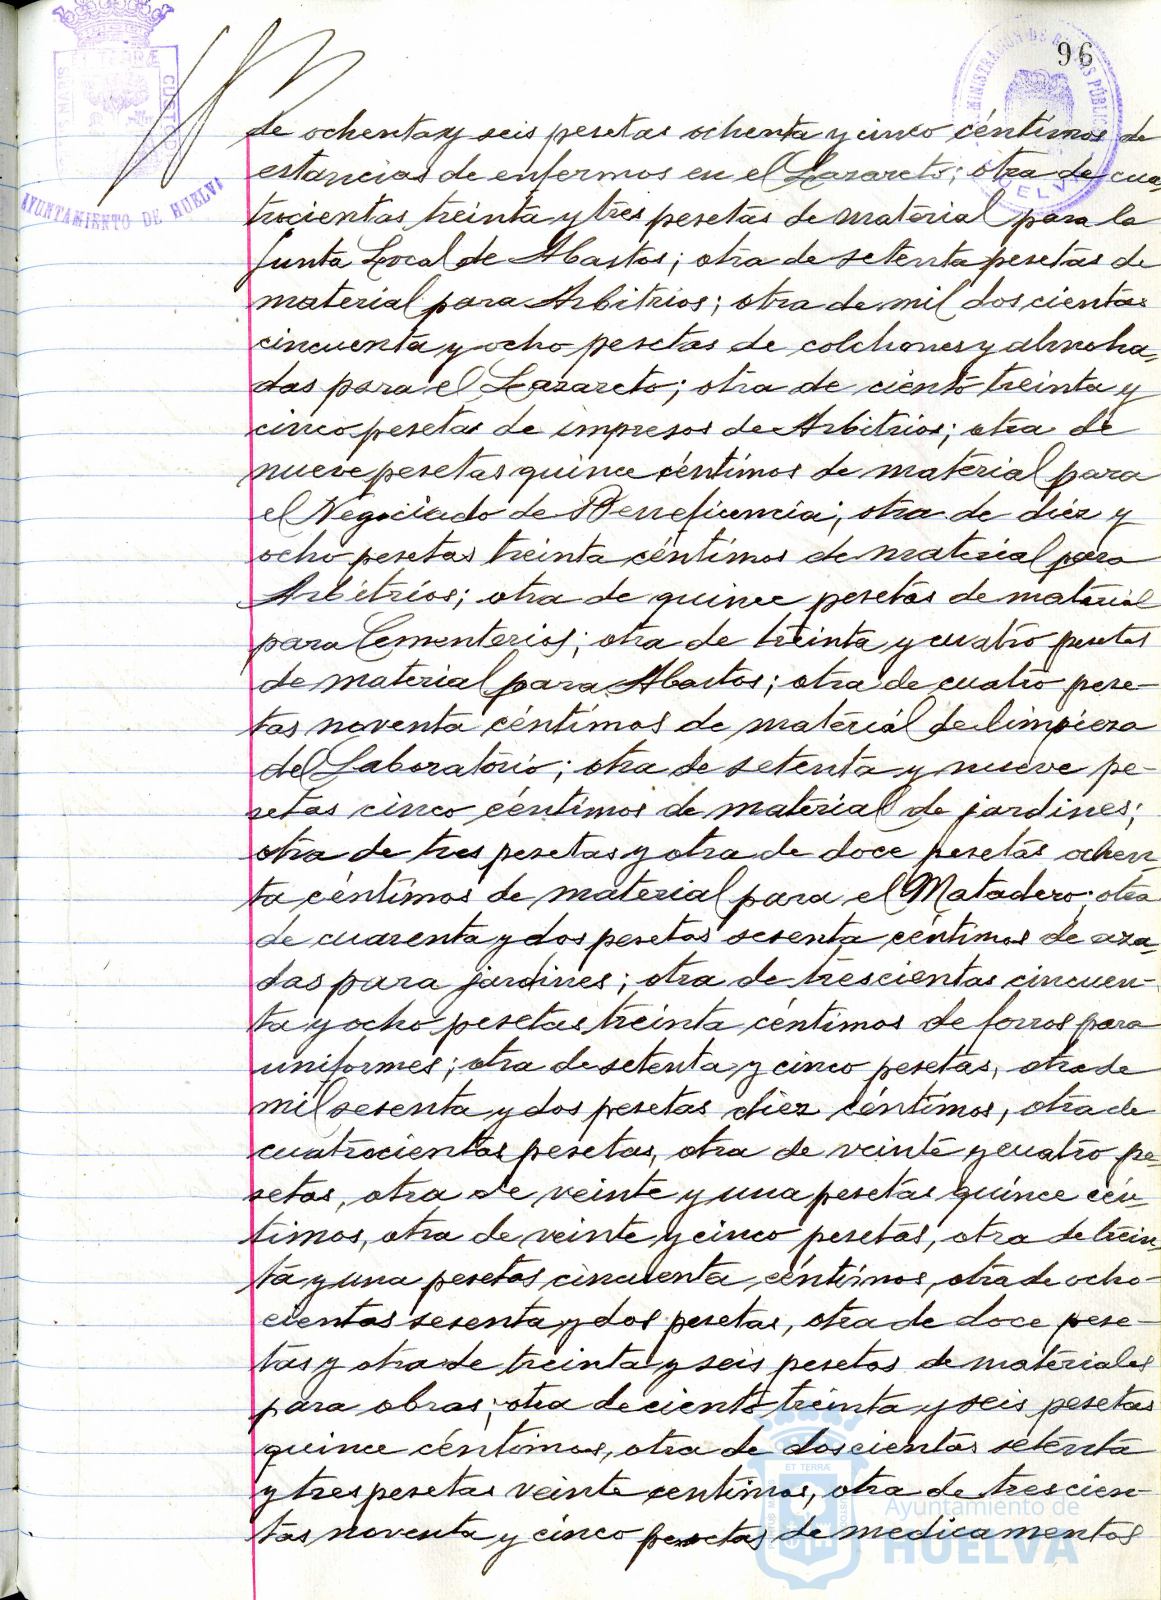 96
AYUNTAMIENTO DE HUELVA
de ochenta y seis pesetas ochenta y cinco céntimos de
estancias de enfermos en el Lazareto; otra de cua-
trocientas treinta y tres pesetas de material para la
Junta Local de Abastos; otra de setenta pesetas de
material para Arbitrios; otra de mil doscientas
cincuenta y ocho pesetas de colchones y almoha-
das para el Lazareto; otra de ciento treinta y
cinco pesetas de impresos de Arbitrios; otra de
nueve pesetas quince céntimos de material para
el Negociado de Beneficencia; otra de diez y
ocho pesetas treinta céntimos de material para
Arbitrios; otra de quince pesetas de material
para Cementerios; otra de treinta y cuatro pesetas
de material para Abastos; otra de cuatro pese-
tas noventa céntimos de material de limpieza
del Laboratorio; otra de setenta y nueve pe-
setas cinco céntimos de material de jardines;
otra de tres pesetas y otra de doce pesetas ochen-
ta céntimos de material para el Matadero; otra
de cuarenta y dos pesetas sesenta céntimos de aza-
das para jardines; otra de trescientas cincuen-
ta y ocho pesetas treinta céntimos de forros para
uniformes; otra de setenta y cinco pesetas, otra de
mil sesenta y dos pesetas diez céntimos, otra de
cuatrocientas pesetas, otra de veinte y cuatro pe-
setas, otra de veinte y una pesetas quince cén-
timos, otra de veinte y cinco pesetas, otra de trein-
ta y una pesetas cincuenta céntimos, otra de ocho-
cientas sesenta y dos pesetas, otra de doce pese-
tas y otra de treinta y seis pesetas de materiales
para obras; otra de ciento treinta y seis pesetas
quince céntimos, otra de doscientas setenta
y tres pesetas veinte centimos, otra de trescien-
tas noventa y cinco pesetas de medicamentos
Ayuntamiento de
HUELVA